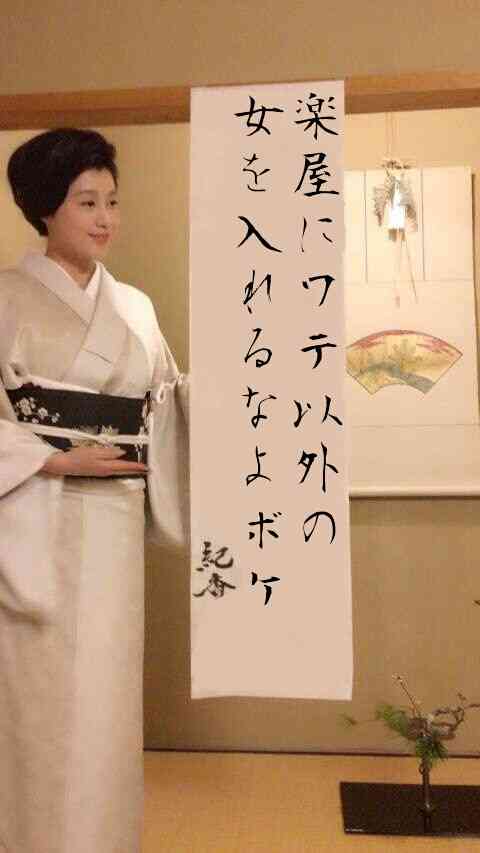 楽屋にワテ以外の
女を入れるなよボケ
紀香